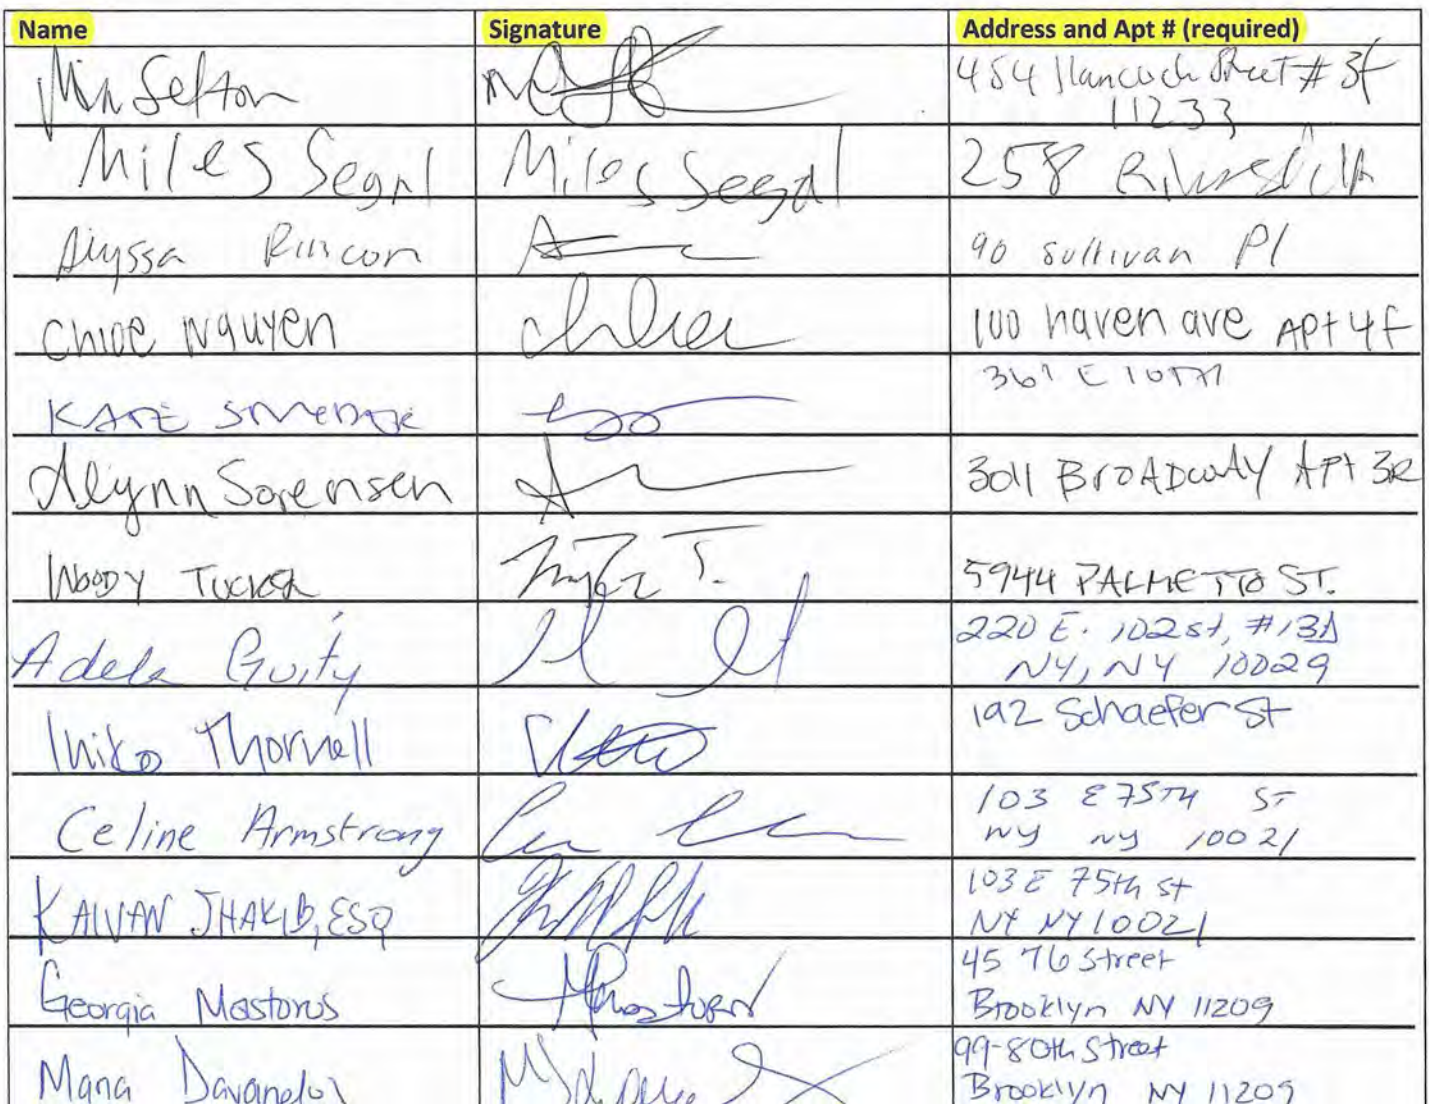 Name Signature Address and Apt # (required)
Sefton 454 Hancock Street # 3f
11233
Miles Segal Miles Seegal 258
Alyssa Rincon 90 Sullivan Pl
Chloe Nguyen 100 haven ave APt 4f
KATE 361 E 10TH
Alynn Sorensen 3011 BroADwAY APt 3R
WOODY TUCKER T. 5944 PALMETTO ST.
Adela Guity 220 E. 102 st, #13A
NY, NY 10029
Iniko Thornell 192 Schaefer St
Celine Armstrong 103 E 75TH ST
NY NY 10021
KAIVAN SHAKIB, ESQ 103 E 75th st
NY NY 10021
Georgia Mastorus 45 76 Street
Brooklyn NY 11209
Maria 99-80th Street
Brooklyn NY 11209